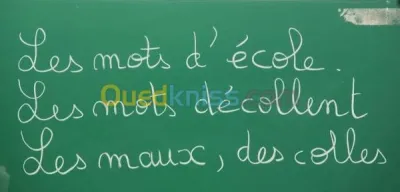 Les mots d'école.
Les mots décollent
Ouedkniss.com
Les maux, des colles